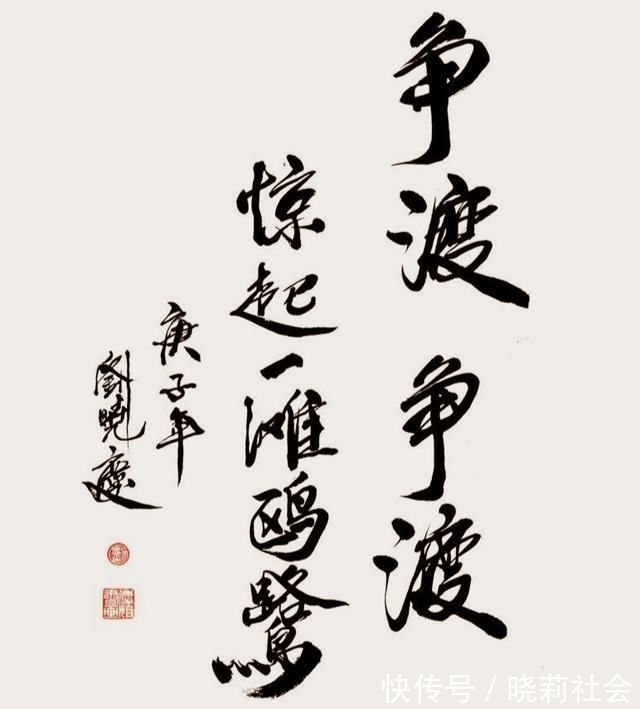 争渡
争渡
惊起一滩鸥鹭
庚子年
劉曉慶
快传号／晓莉社会